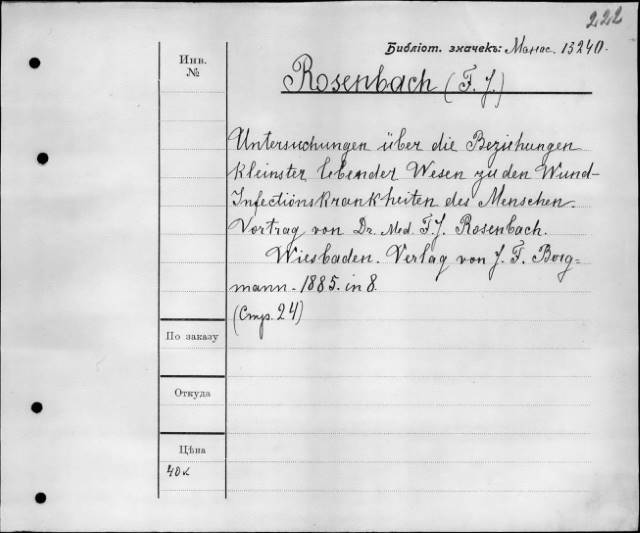 222
Библіот. значекъ: Манас. 13240.
Инв.
№
Rosenbach (F. J.)
Untersuchungen über die Beziehungen
kleinster lebender Wesen zu den Wund-
Infectionskrankheiten des Menschen.
Vortrag von Dr. Med. F. J. Rosenbach.
Wiesbaden. Verlag von J. F. Berg=
mann. 1885. in 8.
(Стр. 24)
По заказу
Откуда
Цѣна
40к